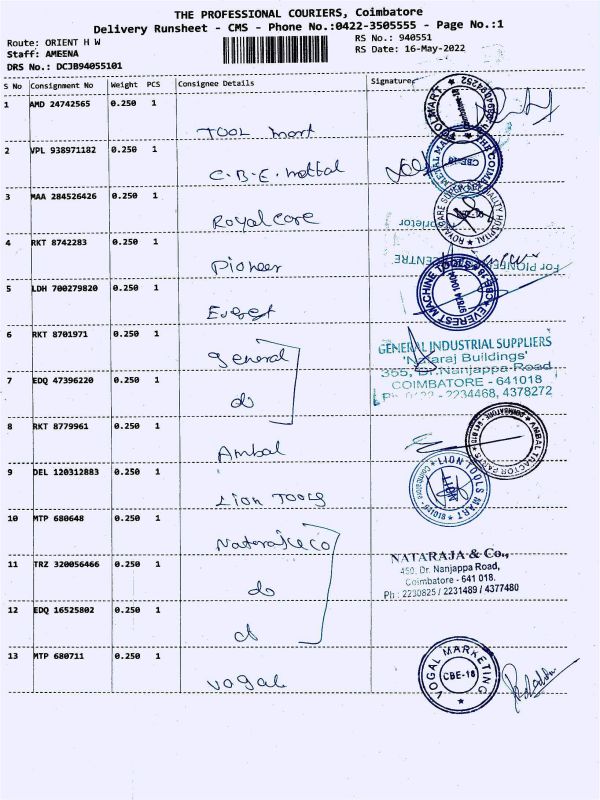 THE PROFESSIONAL COURIERS, Coimbatore
Delivery Runsheet - CMS - Phone No.:0422-3505555 - Page No.:1
Route: ORIENT H W
RS No.: 940551
Staff: AMEENA
RS Date: 16-May-2022
DRS No.: DCJB94055101
S No Consignment No Weight PCS Consignee Details Signature
1 AMD 24742565 0.250 1
TOOL mart
2 VPL 938971182 0.250 1
C.B.E. mettal
CBE-18
3 MAA 284526426 0.250 1
Royal care
4 RKT 8742283 0.250 1
Pioneer
5 LDH 700279820 0.250 1
Everest
EVEREST MACHINE TOOLS
6 RKT 8701971 0.250 1
General
GENERAL INDUSTRIAL SUPPLIERS
'Nataraj Buildings'
7 EDQ 47396220 0.250 1
do
355, Dr.Nanjappa Road
COIMBATORE - 641018
2234468, 4378272
8 RKT 8779961 0.250 1
Ambal
AMBAL TRACTOR PARTS
9 DEL 120312883 0.250 1
Lion TOOLS
LION TOOLS MART
LION
10 MTP 680648 0.250 1
NATARAJA & Co.,
11 TRZ 320056466 0.250 1
do
Dr. Nanjappa Road,
Coimbatore - 641 018.
Ph : 2230825 / 2231489 / 4377480
12 EDQ 16525802 0.250 1
13 MTP 680711 0.250 1
vogal
VOGAL MARKETING
CBE-18